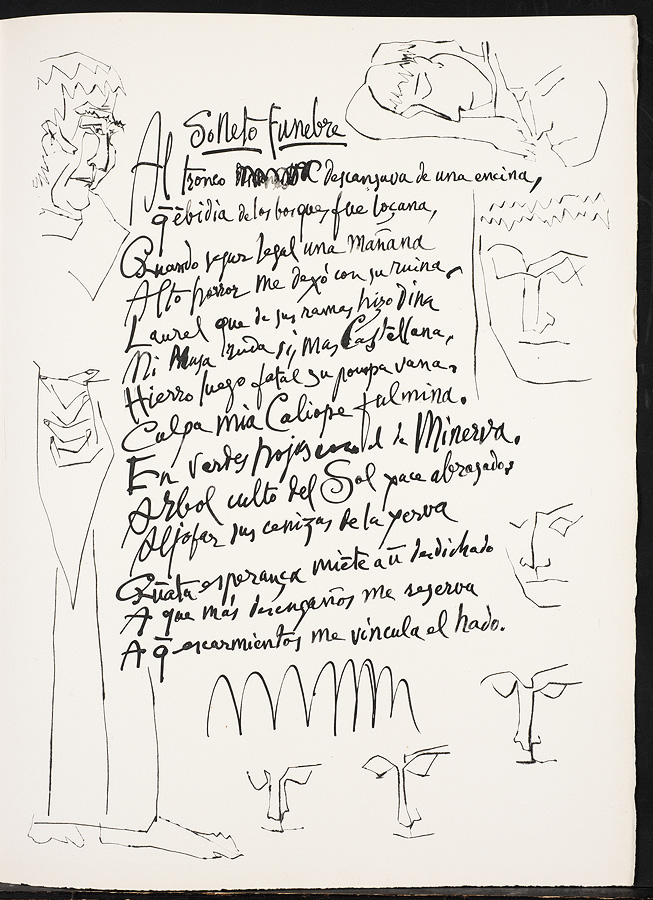 Soneto funebre
Al tronco descansava de una encina,
q̄ ēbidia de los bosques fue loçana,
Quando segur legal una mañana
Alto horror me dexó con su ruina.
Laurel que de sus ramas hizo dina
Mi Musa ruda si, mas Castellana,
Hierro luego fatal su pompa vana.
Culpa mia Caliope fulmina.
En verdes hojas el de Minerva.
Arbol culto del Sol yace abrasado,
Aljofar sus cenizas de la yerva
Quāta esperança miēte a ū desdichado
A que más desengaños me reserva
A q̄ escarmientos me vincula el hado.